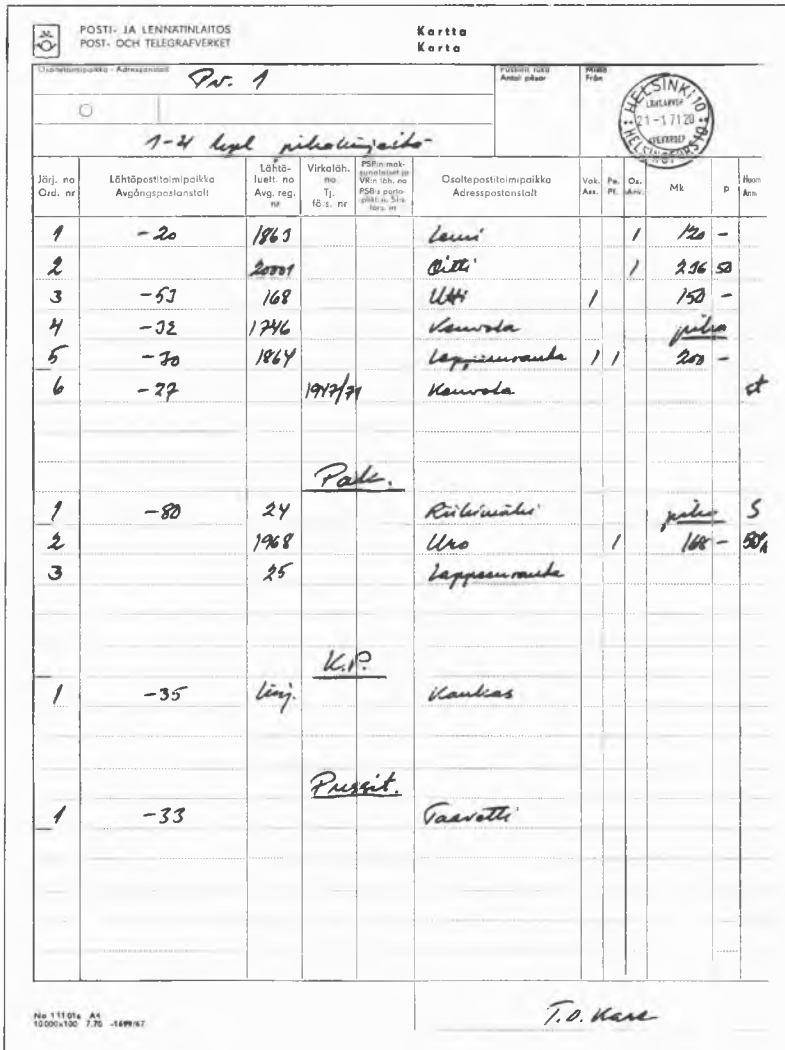 POSTI- JA LENNÄTINLAITOS
POST- OCH TELEGRAFVERKET
Kartta
Karta
Osoitetoimipaikka - Adresspostanstalt
Pv. 1
Pussien luku
Antal påsar
Mistä
Från
HELSINKI 10
21-1 71 20
HELSINGFORS 10
1-4 kpl pikakirjeitä
Järj. no
Ord. nr
Lähtöpostitoimipaikka
Avgångspostanstalt
Lähtö-
luett. no
Avg. reg.
nr
Virkaläh.
no
Tj.
förs. nr
Osoitepostitoimipaikka
Adresspostanstalt
Vak.
Ass.
Pe.
Pf.
Os.
Anv.
Mk
p
Huom
Anm.
1 -20 1863 Lemi / 120 -
2 20001 Oitti / 236 50
3 -53 168 Utti / 150 -
4 -32 1746 Kouvola pika
5 -30 1864 Lappeenranta / / 200 -
6 -27 1947/71 Kouvola st
Pak.
1 -80 24 Riihimäki pika S
2 1968 Uro / 168 -
3 25 Lappeenranta
K.P.
1 -35 linj. Kaukas
Pussit.
1 -33 Taavetti
No 11101a A4
10000x100 7.70 -1699/67